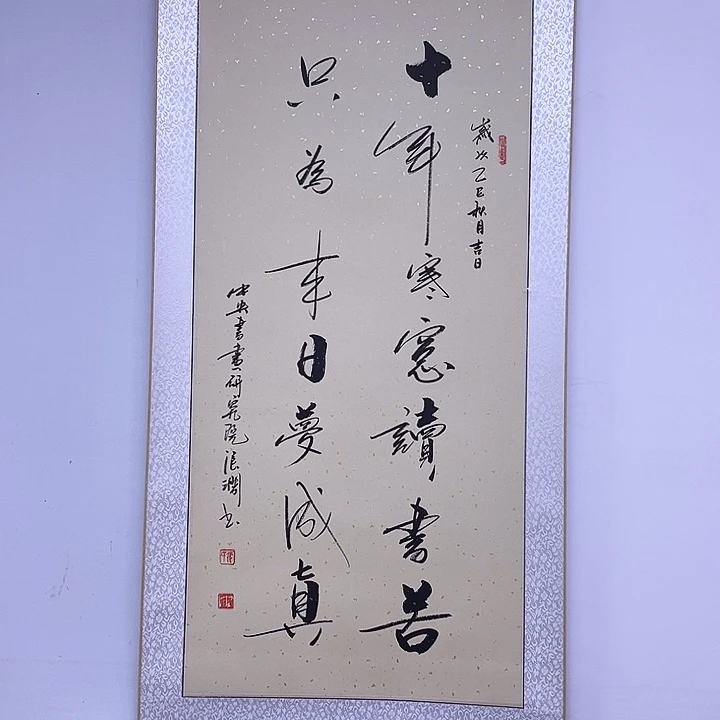 歲次乙巳秋月吉日
十年寒窓讀書苦
只為来日夢成真
中央書畫研究院張潤书